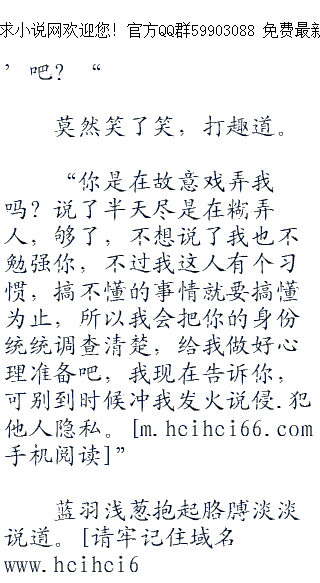 求小说网欢迎您! 官方QQ群59903088 免费最新
’ 吧? “
莫然笑了笑, 打趣道。
“你是在故意戏弄我
吗? 说了半天尽是在糊弄
人, 够了, 不想说了我也不
勉强你, 不过我这人有个习
惯, 搞不懂的事情就要搞懂
为止, 所以我会把你的身份
统统调查清楚, 给我做好心
理准备吧, 我现在告诉你,
可别到时候冲我发火说侵.犯
他人隐私。[m.hcihci66.com
手机阅读]”
蓝羽浅葱抱起胳膊淡淡
说道。[请牢记住域名
www.hcihci6